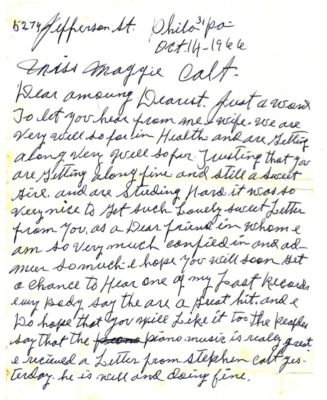 5274 Jefferson St. Phila 31 Pa
Oct 14-1966
Miss Maggie Calt.
Dear amoung Dearest. Just a word
To let you hear from me & wife. we are
very well so far in Health and are getting
along very well so far. Trusting that you
are getting along fine and still a sweet
Girl. and are Studing Hard. it was so
very nice to get such Lovely sweet Letter
from you, as a Dear friend in whom e
am so very much confied in and ad-
mier so much. e hope you will soon get
a chance to Hear one of my Last Records
evry Body say the are a great hit. and e
Do hope that you will Like it too the Peoples
say that the piano music is really great
e recieved a Letter from stephen calt yes-
terday. he is well and doing fine.